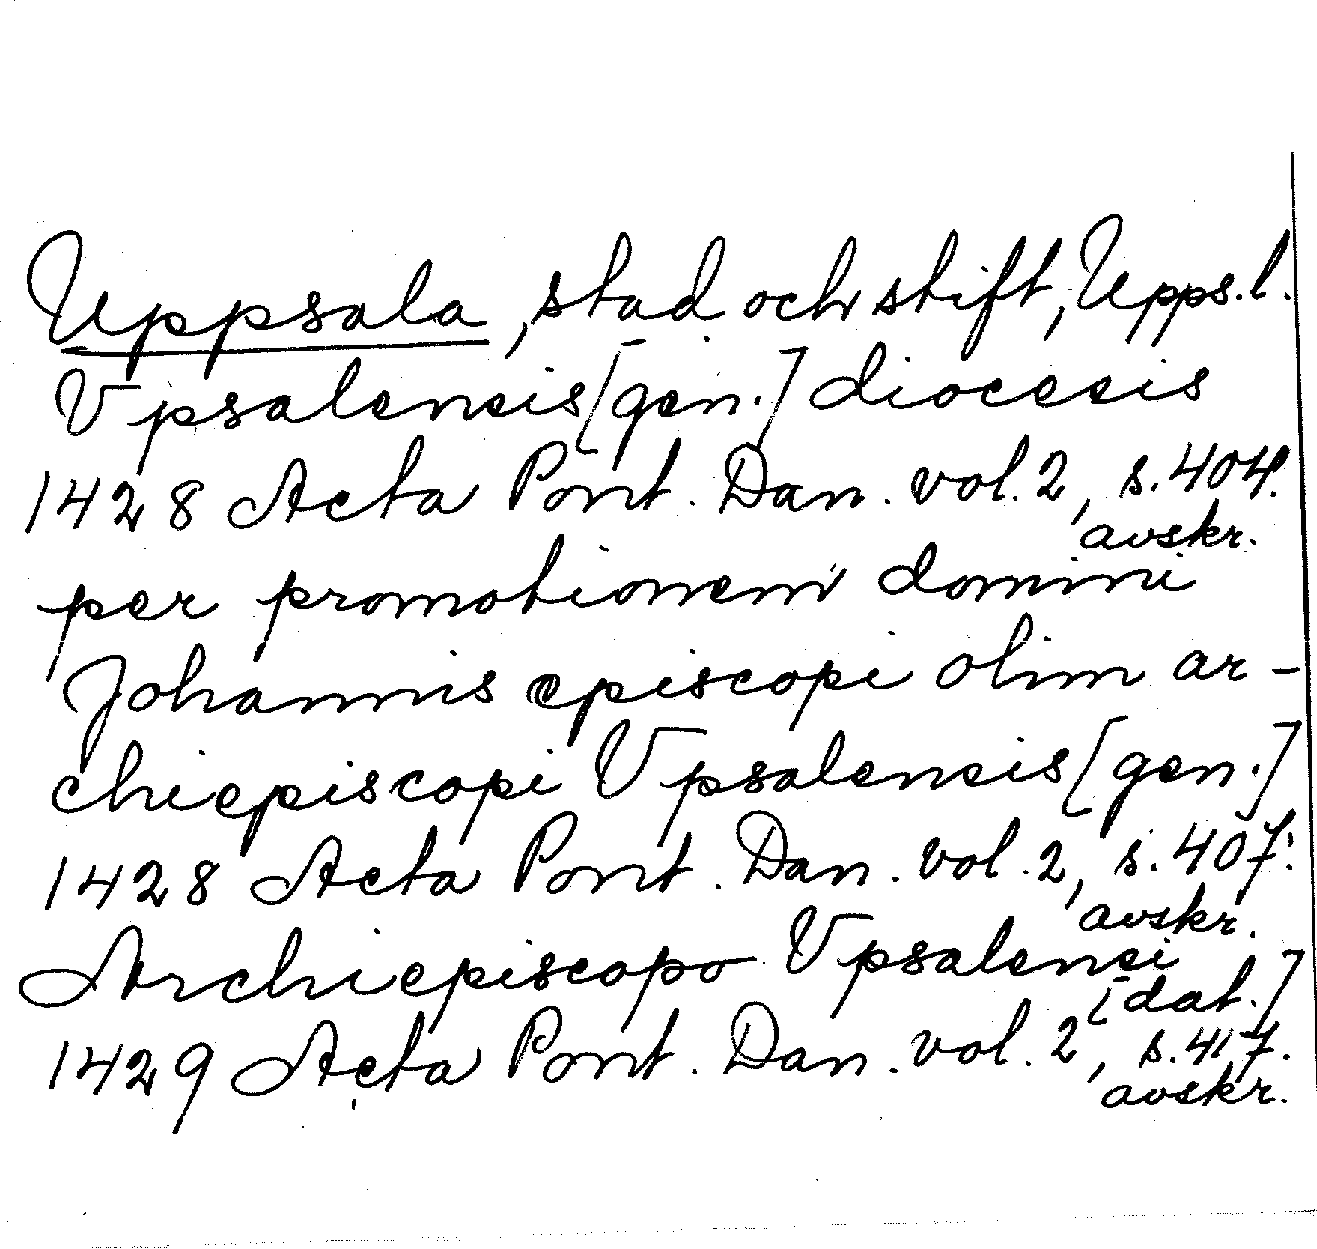 Uppsala, stad och stift, Upps.l.
Vpsalensis [gen.] diocesis
1428 Acta Pont. Dan. vol. 2, s. 404.
avskr.
per promotionem domini
Johannis episcopi olim ar-
chiepiscopi Vpsalensis [gen.]
1428 Acta Pont. Dan. vol. 2, s. 407.
avskr.
Archiepiscopo Vpsalensi
[dat.]
1429 Acta Pont. Dan. vol. 2, s. 417.
avskr.